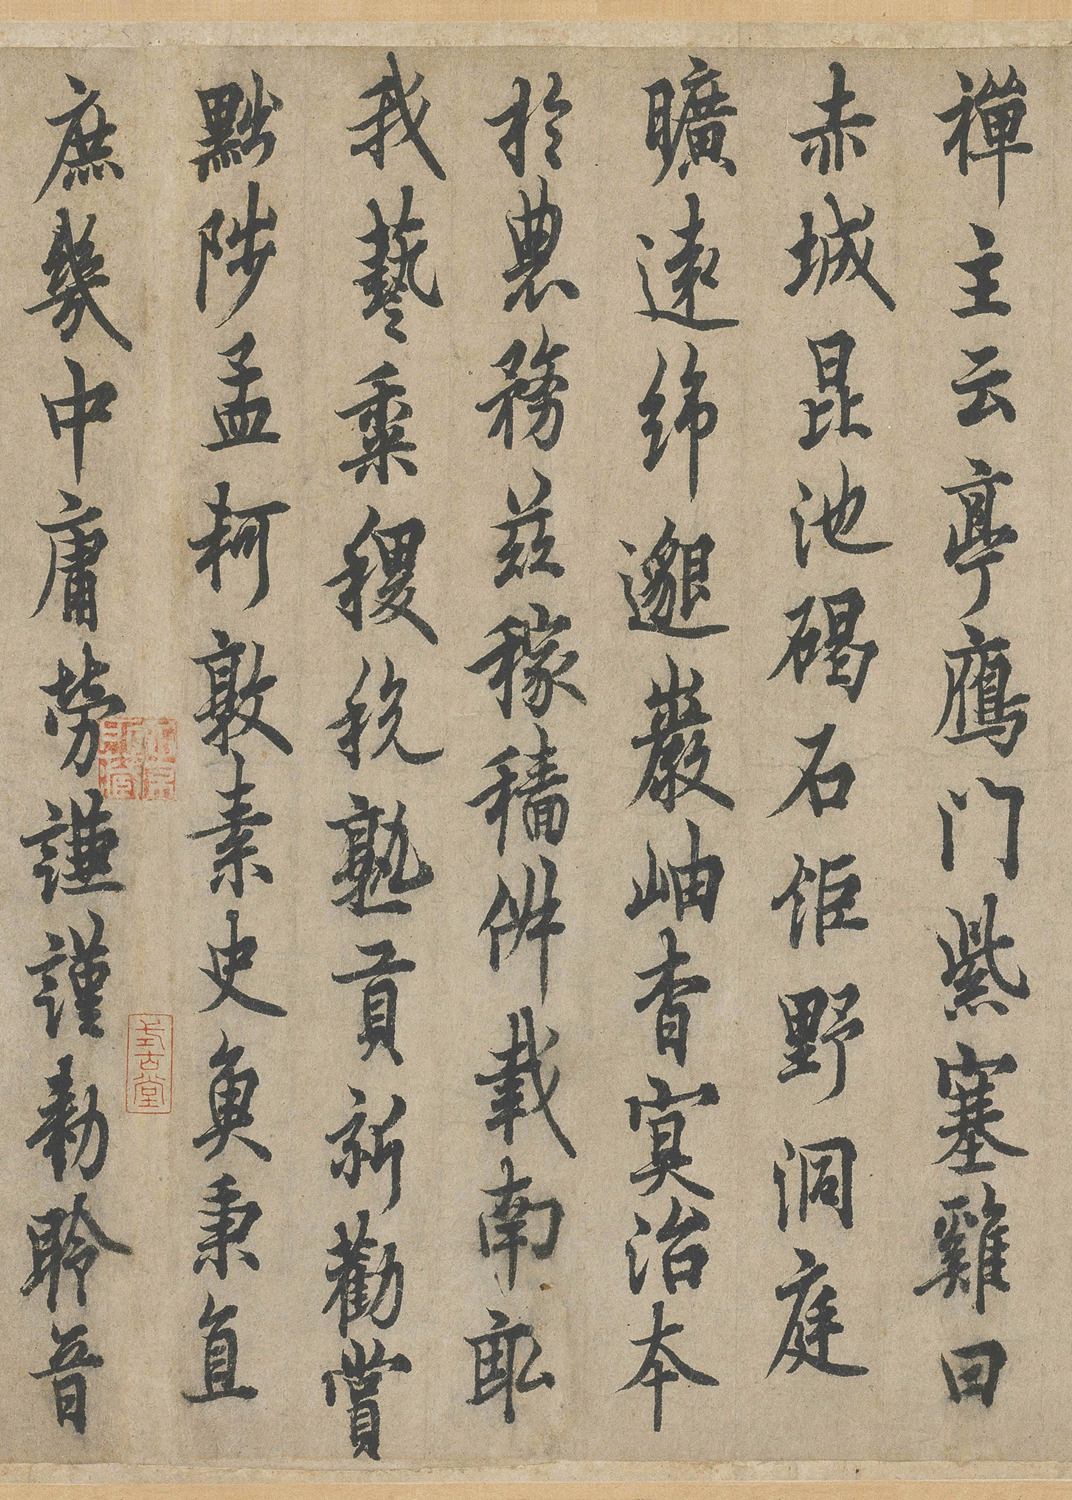 禪主云亭鴈門紫塞雞田
赤城昆池碣石鉅野洞庭
曠遠綿邈巖岫杳冥治本
於農務茲稼穡俶載南畝
我藝黍稷稅熟貢新勸賞
黜陟孟軻敦素史魚秉直
庶幾中庸勞謙謹勅聆音